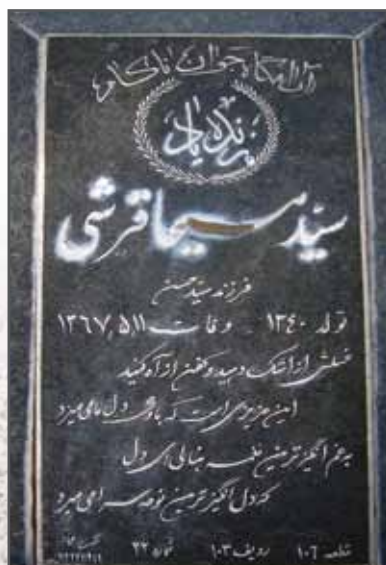 آرامگاه جوان ناکام
زنده یاد
سید مسیحا قرشی
فرزند سید حسن
تولد ۱۳۴۰ وفات ۱۳۶۷٫۵٫۱۱
غسلش از اشک دهید و کفن از آه کنید
این عزیزی است که با وی دل ما می‌میرد
به غم انگیزترین نمی بنالی ای دل
که دل انگیزترین نوحه سرا می‌میرد
قطعه ۱۰۶ ردیف ۱۰۳ شماره ۲۲